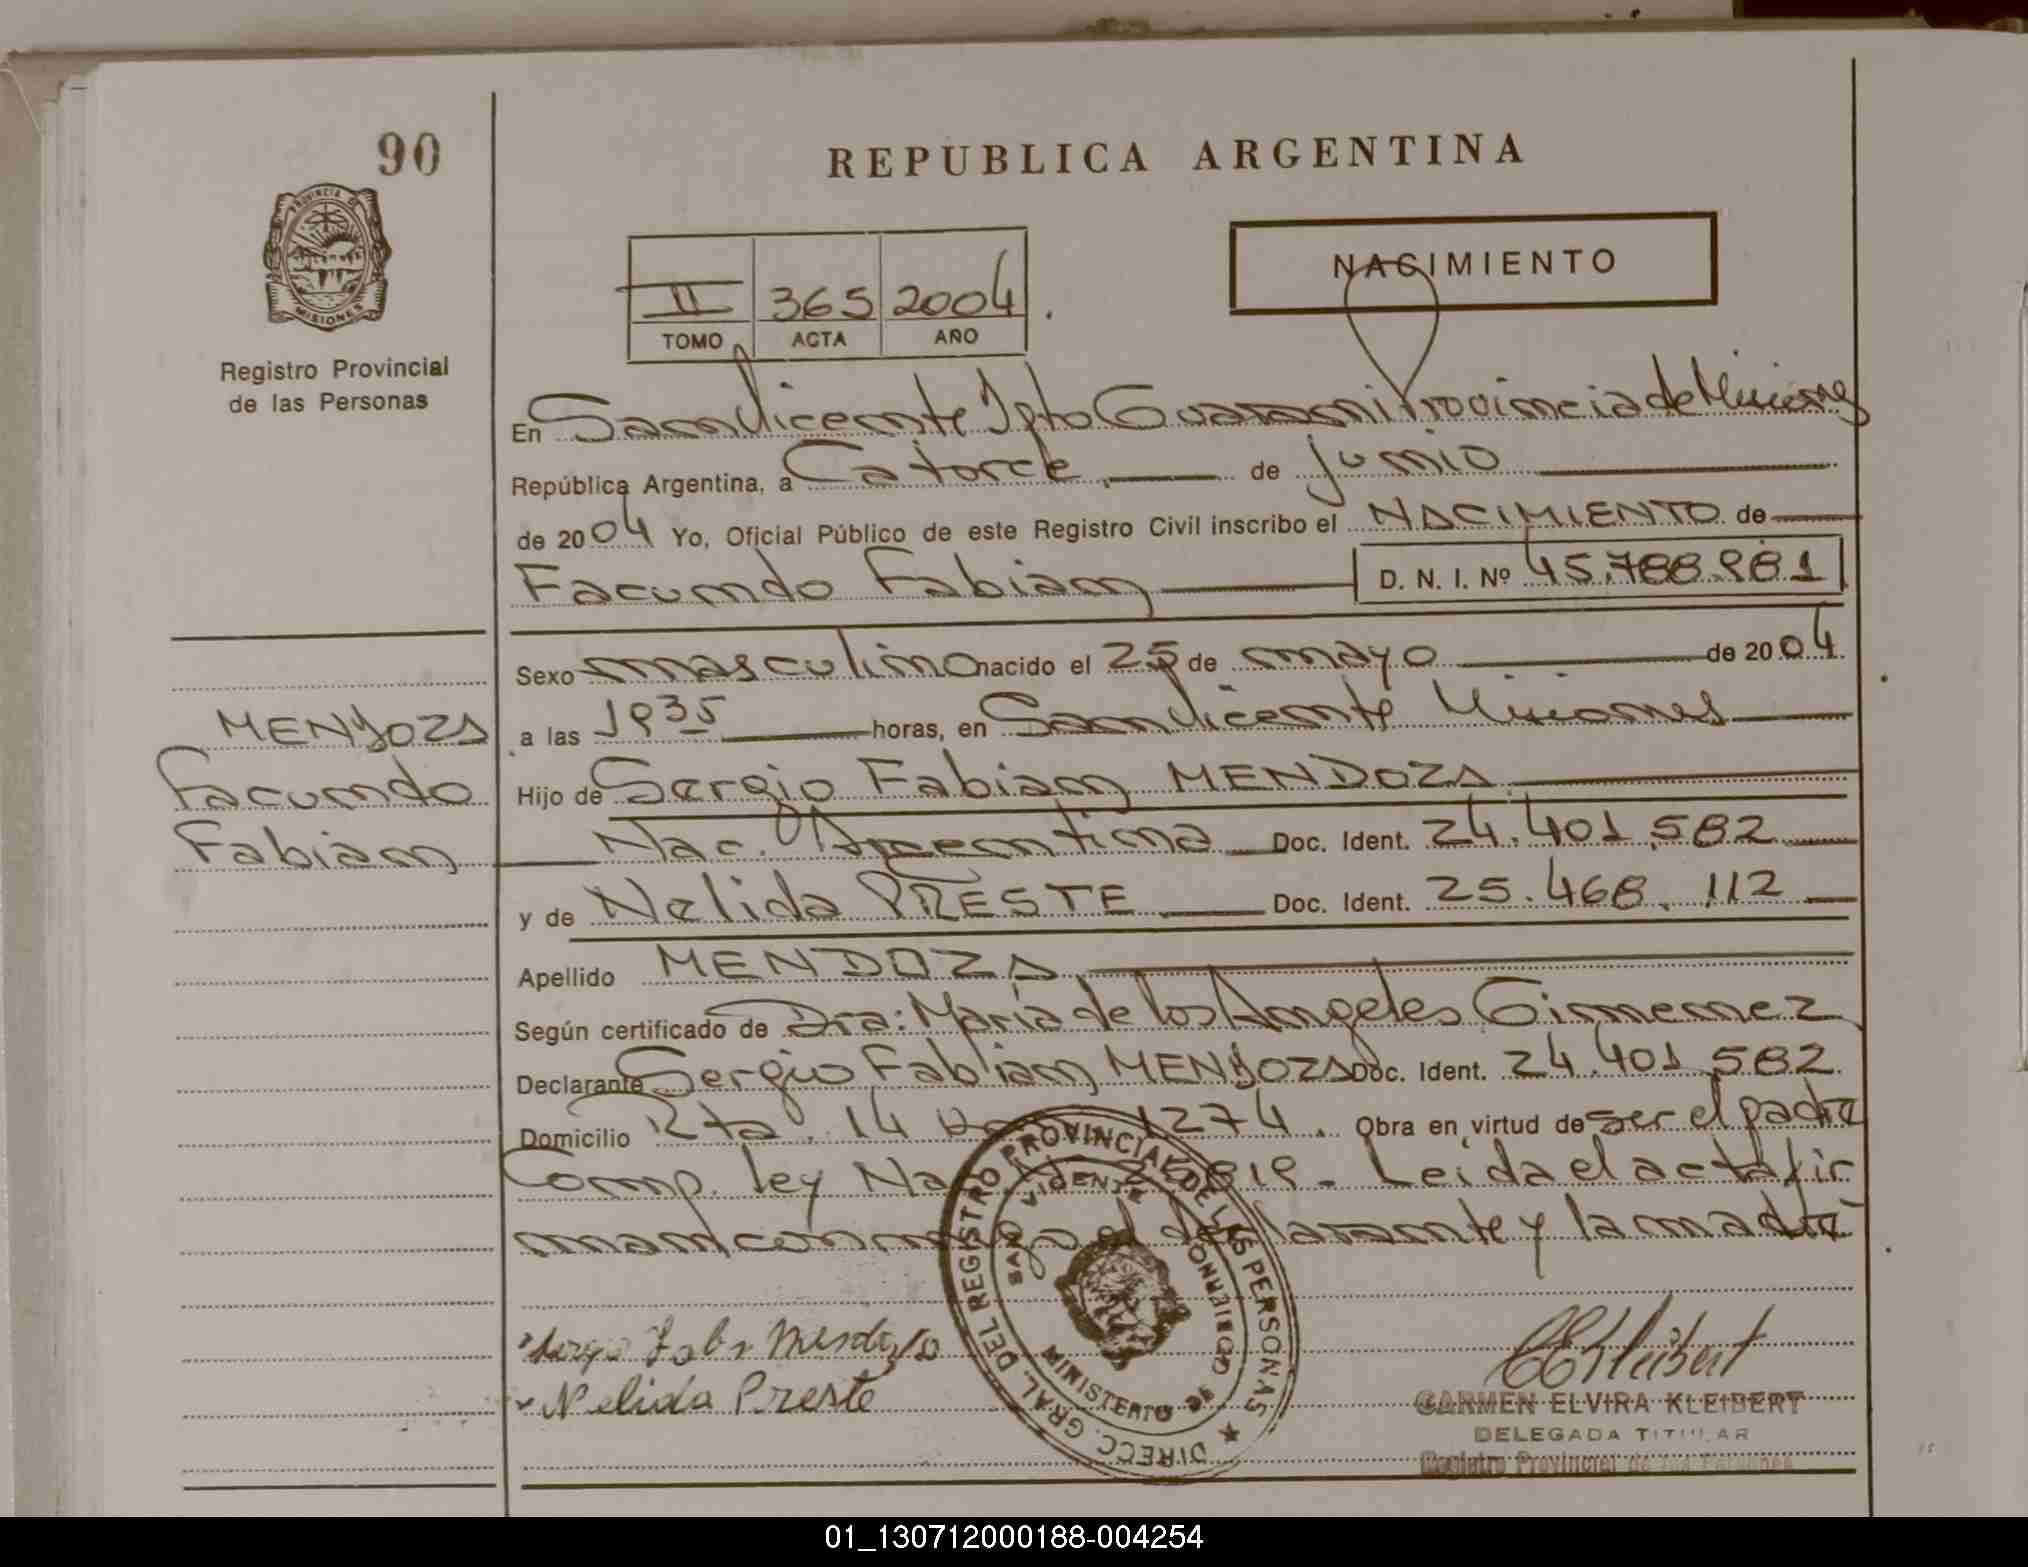 90
REPUBLICA ARGENTINA
PROVINCIA DE
MISIONES
Registro Provincial
de las Personas
II 365 2004
TOMO ACTA AÑO
NACIMIENTO
En San Vicente Dpto Guarani Provincia de Misiones
República Argentina, a Catorce de junio
de 2004 Yo, Oficial Público de este Registro Civil inscribo el NACIMIENTO de
Facundo Fabian D. N. I. Nº 45.788.981
Sexo masculino nacido el 25 de mayo de 2004
MENDOZA
Facundo
Fabian
a las 1935 horas, en San Vicente Misiones
Hijo de Sergio Fabian MENDOZA
Nac. Argentina Doc. Ident. 24.401.582
y de Nelida PRESTE Doc. Ident. 25.468.112
Apellido MENDOZA
Según certificado de Dra: Maria de los Angeles Gimenez
Declarante Sergio Fabian MENDOZA Doc. Ident. 24.401.582
Domicilio Rta. 14 1274. Obra en virtud de ser el padre
Comp. ley Nac. Leida el acta fir
man conmigo el declarante y la madre
DIRECC. GRAL. DEL REGISTRO PROVINCIAL DE LAS PERSONAS
SAN VICENTE
MINISTERIO DE GOBIERNO
Nelida Preste
CEKleibert
CARMEN ELVIRA KLEIBERT
DELEGADA TITULAR
Registro Provincial de las Personas
01_130712000188-004254